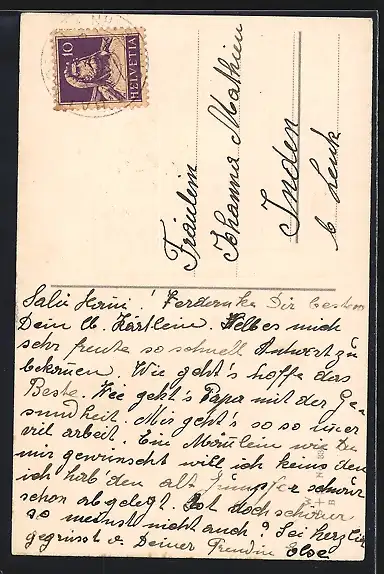 10
HELVETIA
Fräulein
Johanna Mathieu
Inden
b. Leuk
Salü Hanni! Verdanke Dir bestens
Dein lb. Kärtlein. Welbes mich
sehr freute so schnell Antwort zu
bekomen. Wie geht's hoffe das
Beste. Wie geht's Papa mit der Ge-
sundheit. Mir geht's so so immer
viel arbeit. Ein Mäulein wie Du
mir gewünscht will ich keins den
ich hab' den alt Jungfer schwur
schon abgelegt. Ist doch schöner
so meinst nicht auch? Sei herzlich
gegrüsst v. Deiner Freudin Else